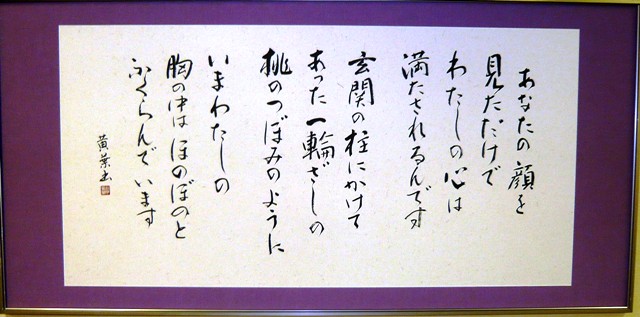 あなたの顔を
見ただけで
わたしの心は
満たされるんです
玄関の柱にかけて
あった一輪ざしの
桃のつぼみのように
いまわたしの
胸の中はほのぼのと
ふくらんでいます
黄葉書